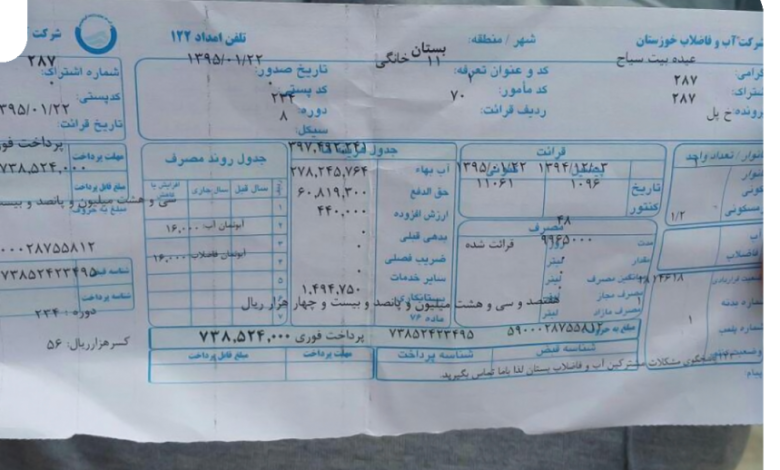 شرکت آب و فاضلاب خوزستان
شهر / منطقه: بستان
تلفن امداد ۱۲۲
شرکت
عبده بیت سیاح
۲۸۷
۲۸۷
خ پل
کد و عنوان تعرفه: ۱۱ خانگی
کد مأمور:
ردیف قرائت: ۷۰
تاریخ صدور: ۱۳۹۵/۰۱/۲۲
کد پستی:
دوره: ۲۳۴
سیکل: ۸
۲۸۷
شماره اشتراک:
کدپستی:
تاریخ قرائت:
قرائت
۱۳۹۴/۱۲/۰۳
۱۳۹۵/۰۱/۲۲
تاریخ
کنتور
۱۰۹۶
۱۱۰۶۱
مصرف
۴۸
۹۹۶۵۰۰۰
قرائت شده
مدت
مقدار
لیتر
میانگین مصرف
مصرف مجاز
مصرف مازاد
لیتر
۱/۲
۱
آب بهاء ۲۷۸,۲۴۵,۷۶۴
حق الدفع ۶۰,۸۱۹,۳۰۰
ارزش افزوده ۴۴۰,۰۰۰
بدهی قبلی
ضریب فصلی
سایر خدمات
بستانکاری
۱,۴۹۴,۷۵۰
ماده ۷۶
جدول روند مصرف
سال قبل
سال جاری
آبونمان آب: ۱۶,۰۰۰
آبونمان فاضلاب: ۱۶,۰۰۰
هفتصد و سی و هشت میلیون و پانصد و بیست و چهار هزار ریال
۵۹۰۰۰۲۸۷۵۵۸۱۲
۷۳۸۵۲۴۲۳۴۹۵
پرداخت فوری ۷۳۸,۵۲۴,۰۰۰
شناسه قبض
شناسه پرداخت
مهلت پرداخت
مبلغ قابل پرداخت
مشکلات مشترکین آب و فاضلاب بستان لذا باما تماس بگیرید.
پیام
پرداخت فوری
مهلت پرداخت
۷۳۸,۵۲۴,۰۰۰
مبلغ قابل پرداخت
سی و هشت میلیون و پانصد و بیست
مبلغ به حروف
۰۰۰۲۸۷۵۵۸۱۲
۷۳۸۵۲۴۲۳۴۹۵
شناسه پرداخت
دوره: ۲۳۴
کسرهزارریال: ۵۶